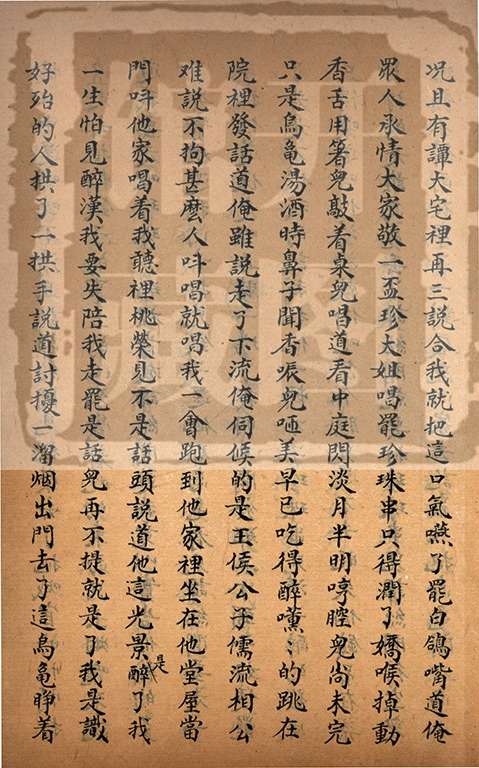 况且有譚大宅裡再三説合我就把這口氣嚥了罷白鴿嘴道俺
眾人承情大家敬一盃珍大姐唱罷珍珠串只得潤了嬌喉掉動
香舌用箸兒敲着桌兒唱道看中庭閃淡月半明哼腔兒尚未完
只是烏龜湯酒時鼻子聞香哌兒咂美早已吃得醉嚑〻的跳在
院裡發話道俺雖説走了下流俺伺候的是王侯公子儒流相公
难説不拘甚麽人呌唱就唱我一會跑到他家裡坐在他堂屋當
門呌他家唱着我聽裡桃榮見不是話頭說道他這光景是醉了我
一生怕見醉漢我要失陪我走罷是話兒再不提就是了我是識
好歹的人拱了一拱手説道討擾一溜烟出門去了這烏龜睁着